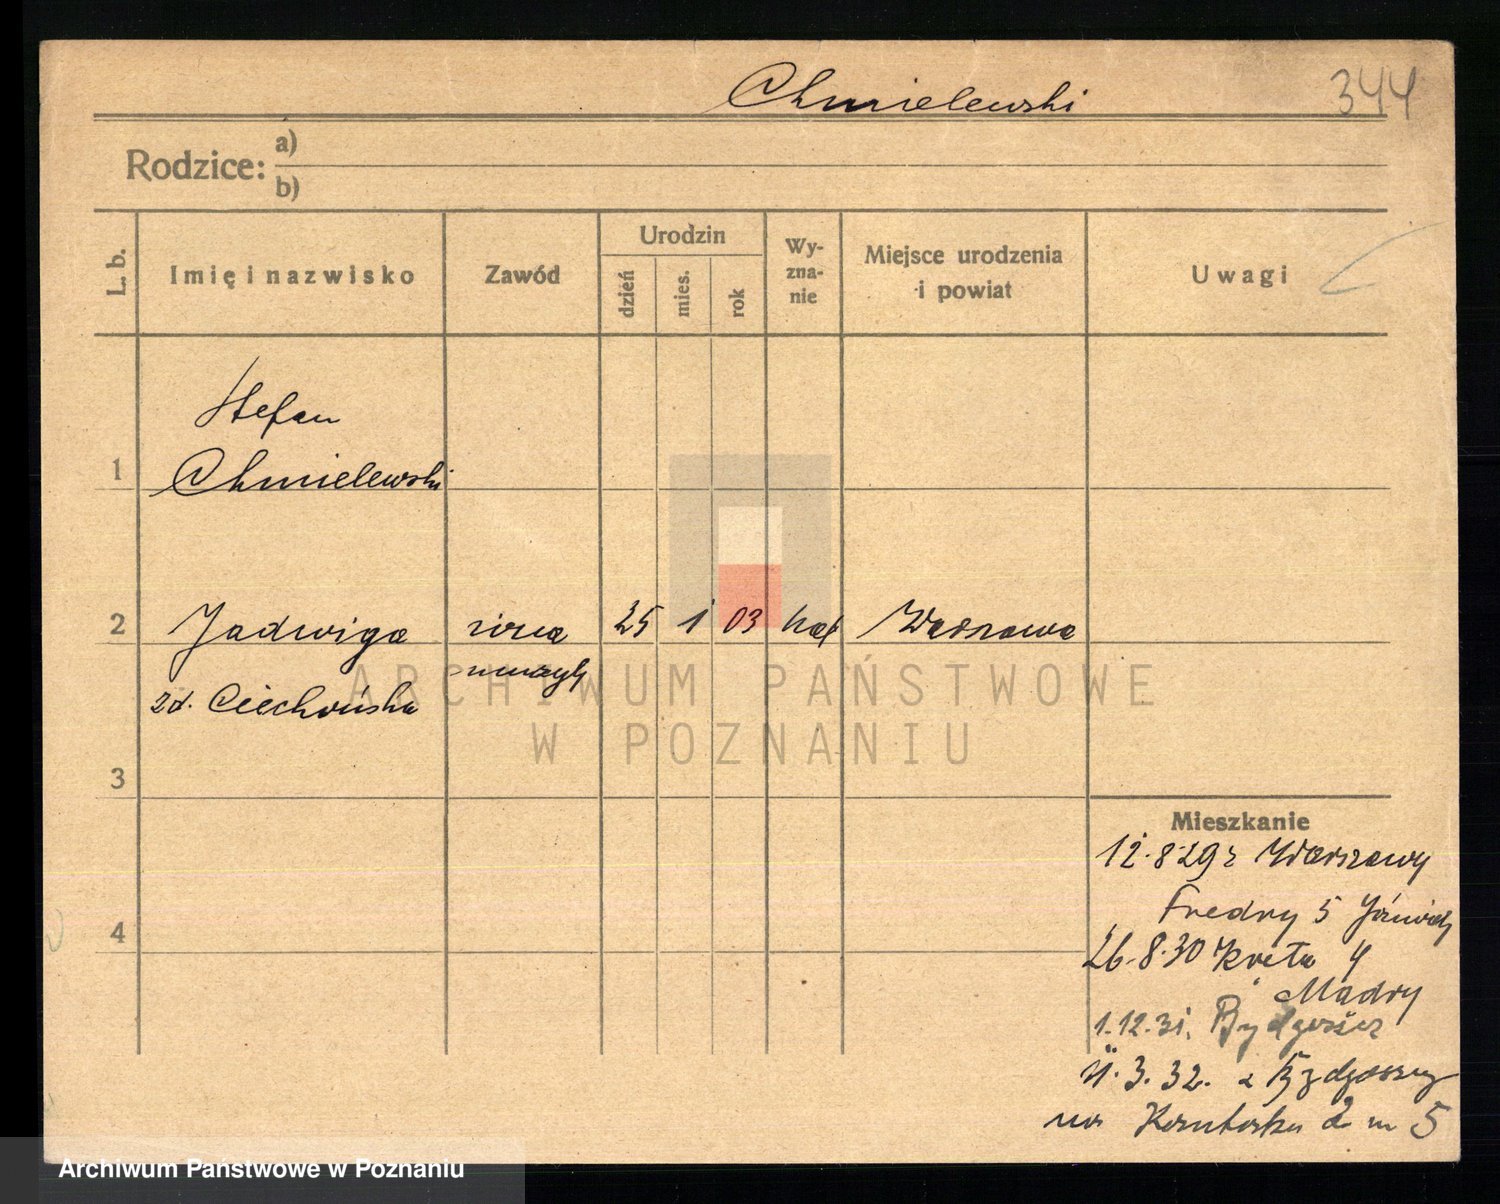 Chmielewski
344
Rodzice:
a)
b)
L. b.
Imię i nazwisko
Zawód
Urodzin
dzień
mies.
rok
Wy-
zna-
nie
Miejsce urodzenia
i powiat
Uwagi
Stefan
1 Chmielewski
2 Jadwiga żona 25 1 03 kat Warszawa
muzyk
zd. Ciechońska
3
4
Mieszkanie
12.8.29 z Warszawy
Fredry 5
26.8.30 Kreta 4
Madry
1.12.31. Bydgoszcz
11.3.32. z Bydgoszczy
na 2 m 5
ARCHIWUM PAŃSTWOWE
W POZNANIU
Archiwum Państwowe w Poznaniu